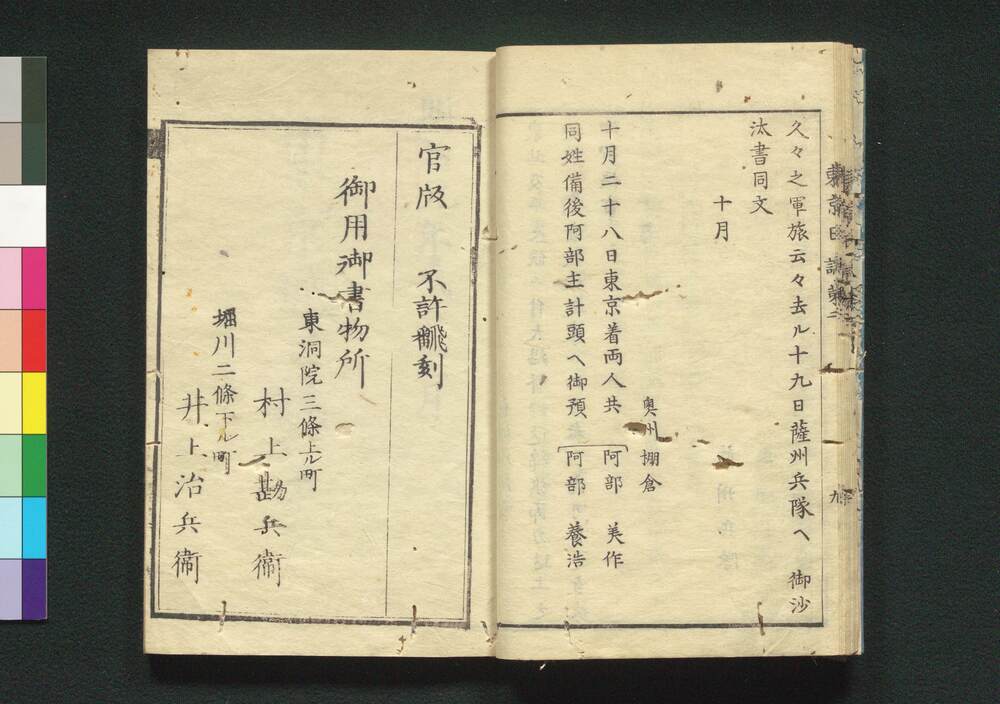 久々之軍旅云々去ル十九日薩州兵隊へ 御沙
汰書同文
十月
奥州棚倉
十月二十八日東京着両人共 阿部 美作
同姓備後阿部主計頭へ御預 阿部 養浩
九
官版 不許飜刻
御用御書物所
東洞院三條上ル町
村上勘兵衛
堀川二條下ル町
井上治兵衛